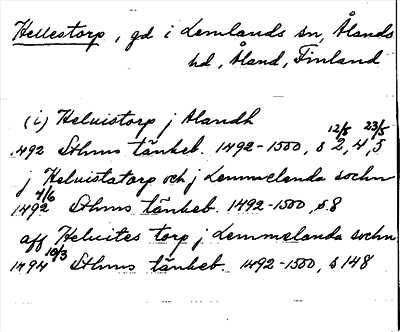 Hellestorp, gd i Lemlands sn, Ålands
hd, Åland, Finland
(i) Heluistorp j Alandh
12/8 23/8
1492 Sthms tänkeb. 1492-1500, s 2, 4, 5
j Heluistatorp och j Lemmelanda sochn
4/6
1492 Sthms tänkeb. 1492-1500, s. 8
aff Heluites torp j Lemmelanda sochn
10/3
1494 Sthms tänkeb. 1492-1500, s 148